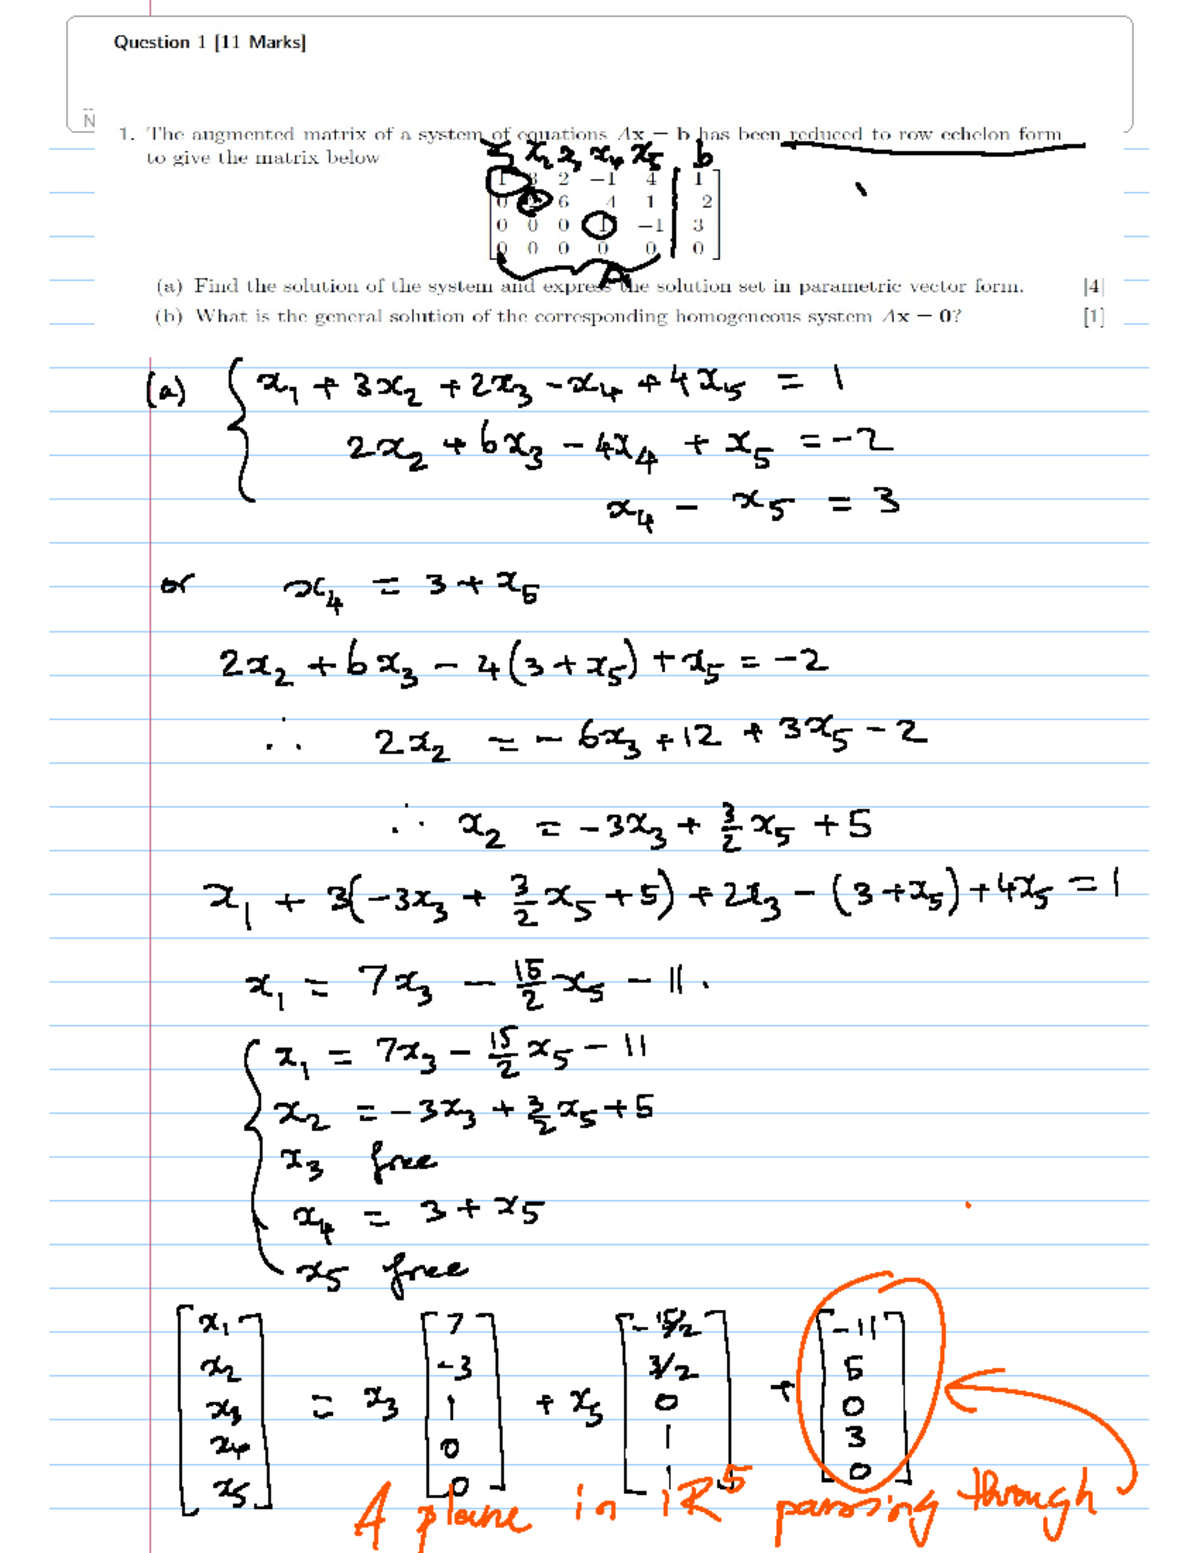 Question 1 [11 Marks]
N
1. The augmented matrix of a system of equations Ax = b has been reduced to row echelon form
to give the matrix below
x₂ x₃ x₄ x₅ b
1 3 2 −1 4 1
0 6 4 1 2
0 0 0 1 −1 3
0 0 0 0 0 0
A
(a) Find the solution of the system and express the solution set in parametric vector form. [4]
(b) What is the general solution of the corresponding homogeneous system Ax = 0? [1]
(a) x₁ + 3x₂ + 2x₃ − x₄ + 4x₅ = 1
2x₂ + 6x₃ − 4x₄ + x₅ = −2
x₄ − x₅ = 3
or x₄ = 3 + x₅
2x₂ + 6x₃ − 4(3 + x₅) + x₅ = −2
∴ 2x₂ = − 6x₃ + 12 + 3x₅ − 2
∴ x₂ = −3x₃ + 3/2 x₅ + 5
x₁ + 3(−3x₃ + 3/2 x₅ + 5) + 2x₃ − (3 + x₅) + 4x₅ = 1
x₁ = 7x₃ − 15/2 x₅ − 11.
x₁ = 7x₃ − 15/2 x₅ − 11
x₂ = −3x₃ + 3/2 x₅ + 5
x₃ free
x₄ = 3 + x₅
x₅ free
x₁ 7 −15/2 −11
x₂ −3 3/2 5
x₃ = x₃ 1 + x₅ 0 + 0
x₄ 0 1 3
x₅ 0 1 0
A plane in ℝ⁵ passing through